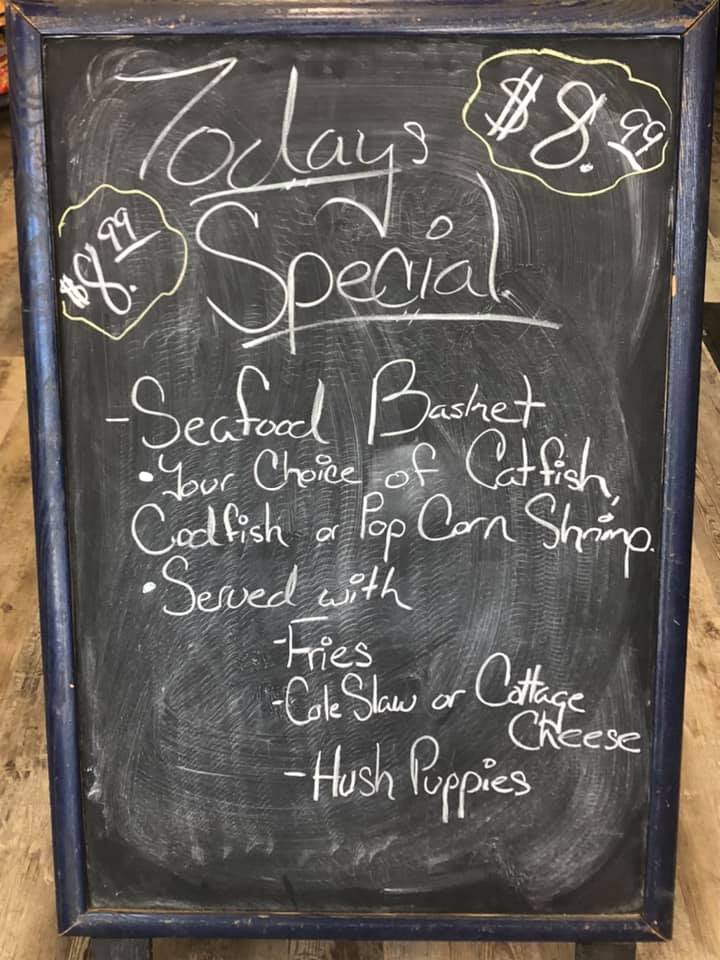 Todays
$8.99
Special
$8.99
- Seafood Basket
• Your Choice of Catfish,
Codfish or Pop Corn Shrimp.
• Served with
- Fries
- Cole Slaw or Cottage
Cheese
- Hush Puppies